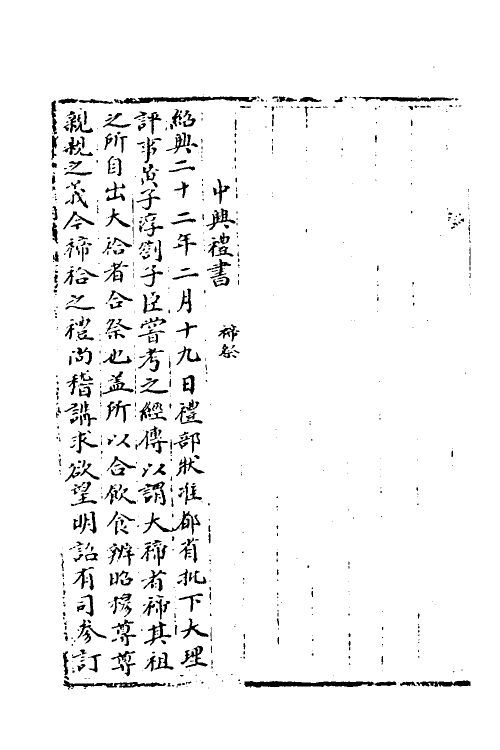 中興禮書
禘祭
紹興二十二年二月十九日禮部狀准都省批下大理
評事黃子淳劄子臣嘗考之經傳以謂大禘者禘其祖
之所自出大祫者合祭也蓋所以合飲食辨昭穆尊尊
親親之義今禘祫之禮尚稽講求欲望明詔有司參訂